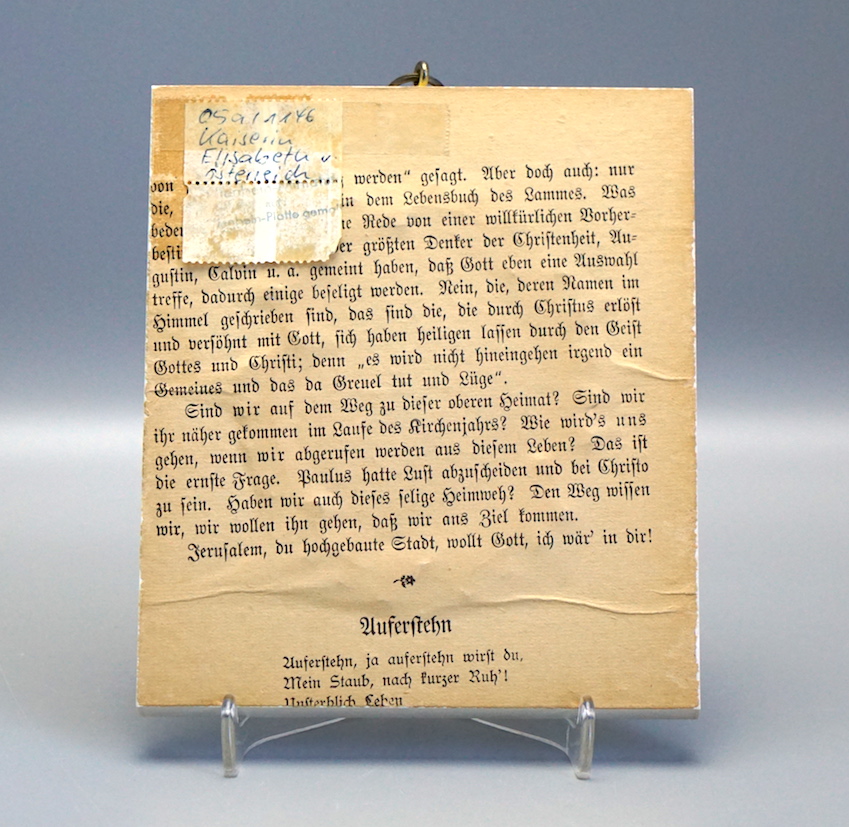 09a/1146
Kaiserin
Elisabeth v.
Österreich
von werden“ geſagt. Aber doch auch: nur
die, in dem Lebensbuch des Lammes. Was
ne Rede von einer willkürlichen Vorher-
beſti der größten Denker der Chriſtenheit, Au-
guſtin, Calvin u. a. gemeint haben, daß Gott eben eine Auswahl
treffe, dadurch einige beſeligt werden. Nein, die, deren Namen im
Himmel geſchrieben ſind, das ſind die, die durch Chriſtus erlöſt
und verſöhnt mit Gott, ſich haben heiligen laſſen durch den Geiſt
Gottes und Chriſti; denn „es wird nicht hineingehen irgend ein
Gemeines und das da Greuel tut und Lüge“.
Sind wir auf dem Weg zu dieſer oberen Heimat? Sind wir
ihr näher gekommen im Laufe des Kirchenjahrs? Wie wird's uns
gehen, wenn wir abgerufen werden aus dieſem Leben? Das iſt
die ernſte Frage. Paulus hatte Luſt abzuſcheiden und bei Chriſto
zu ſein. Haben wir auch dieſes ſelige Heimweh? Den Weg wiſſen
wir, wir wollen ihn gehen, daß wir ans Ziel kommen.
Jeruſalem, du hochgebaute Stadt, wollt Gott, ich wär' in dir!
Auferſtehn
Auferſtehn, ja auferſtehn wirſt du,
Mein Staub, nach kurzer Ruh'!
Unſterblich Leben